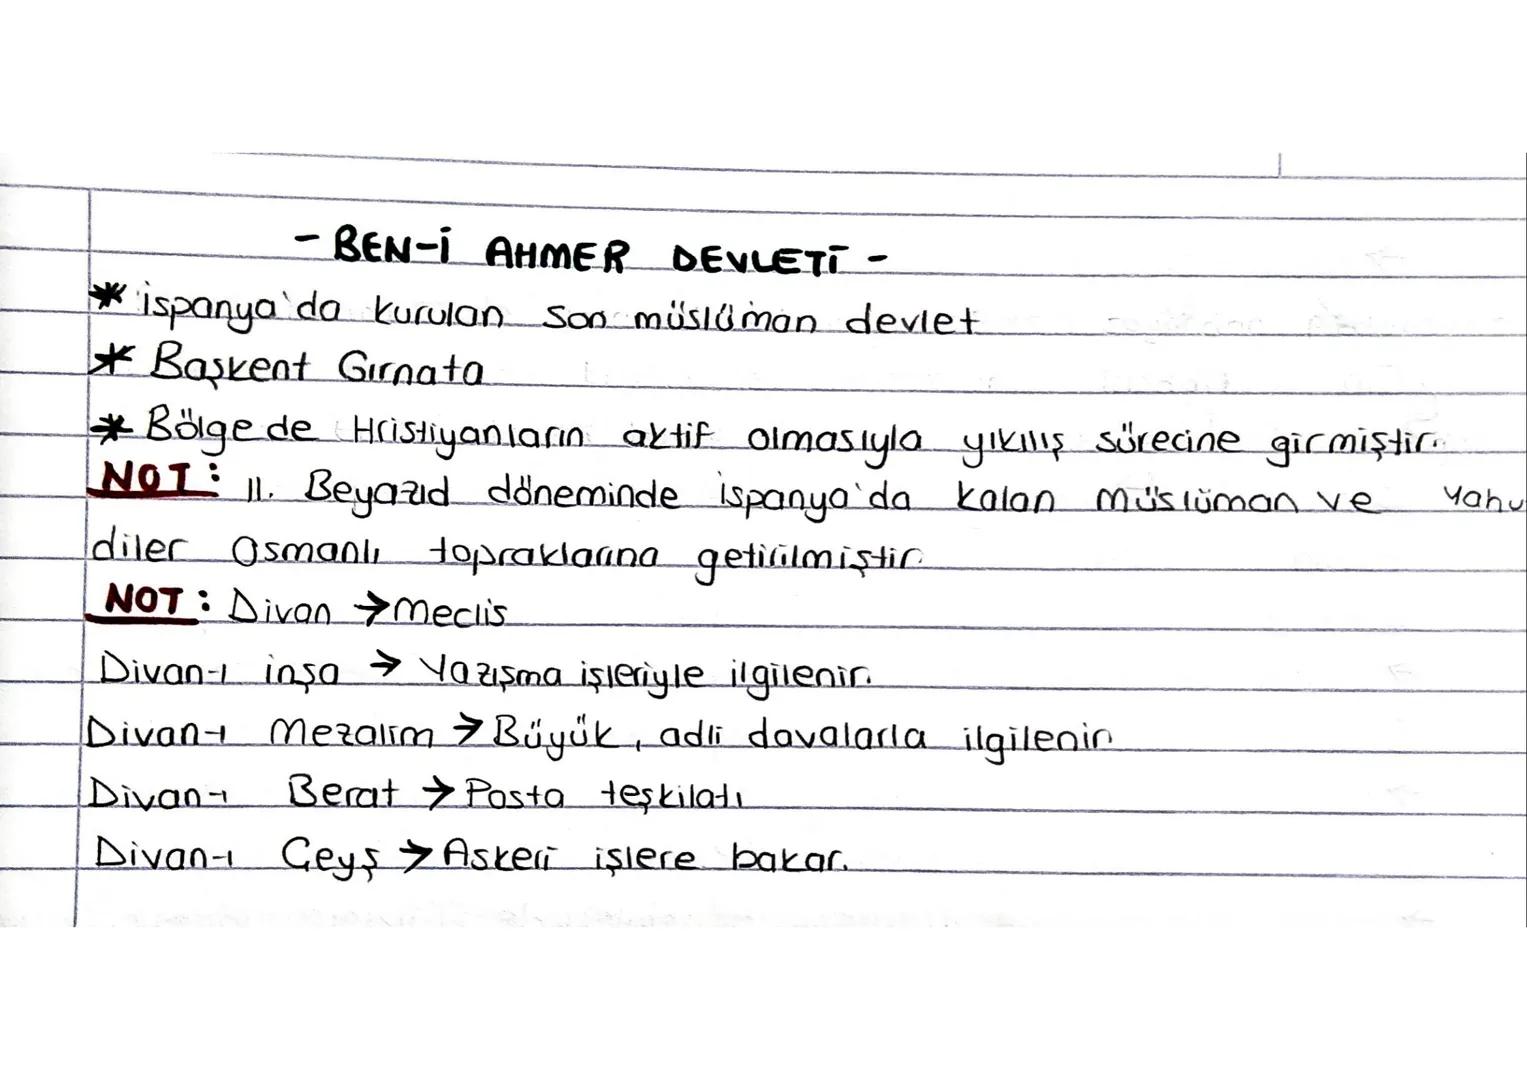 - BEN-İ AHMER DEVLETİ -
* ispanya'da kurulan son müslüman devlet
* Başkent Gırnata
* Bölgede Hristiyanların aktif olmasıyla yıkılış sürecine girmiştir.
NOT: II. Beyazıd döneminde ispanya'da kalan müslüman ve yahu
diler Osmanlı topraklarına getirilmiştir.
NOT: Divan → Meclis
Divan-ı inşa → Yazışma işleriyle ilgilenir.
Divan-ı Mezalim → Büyük, adli davalarla ilgilenir
Divan-ı Berat → Posta teşkilatı
Divan-ı Ceyş → Askeri işlere bakar.